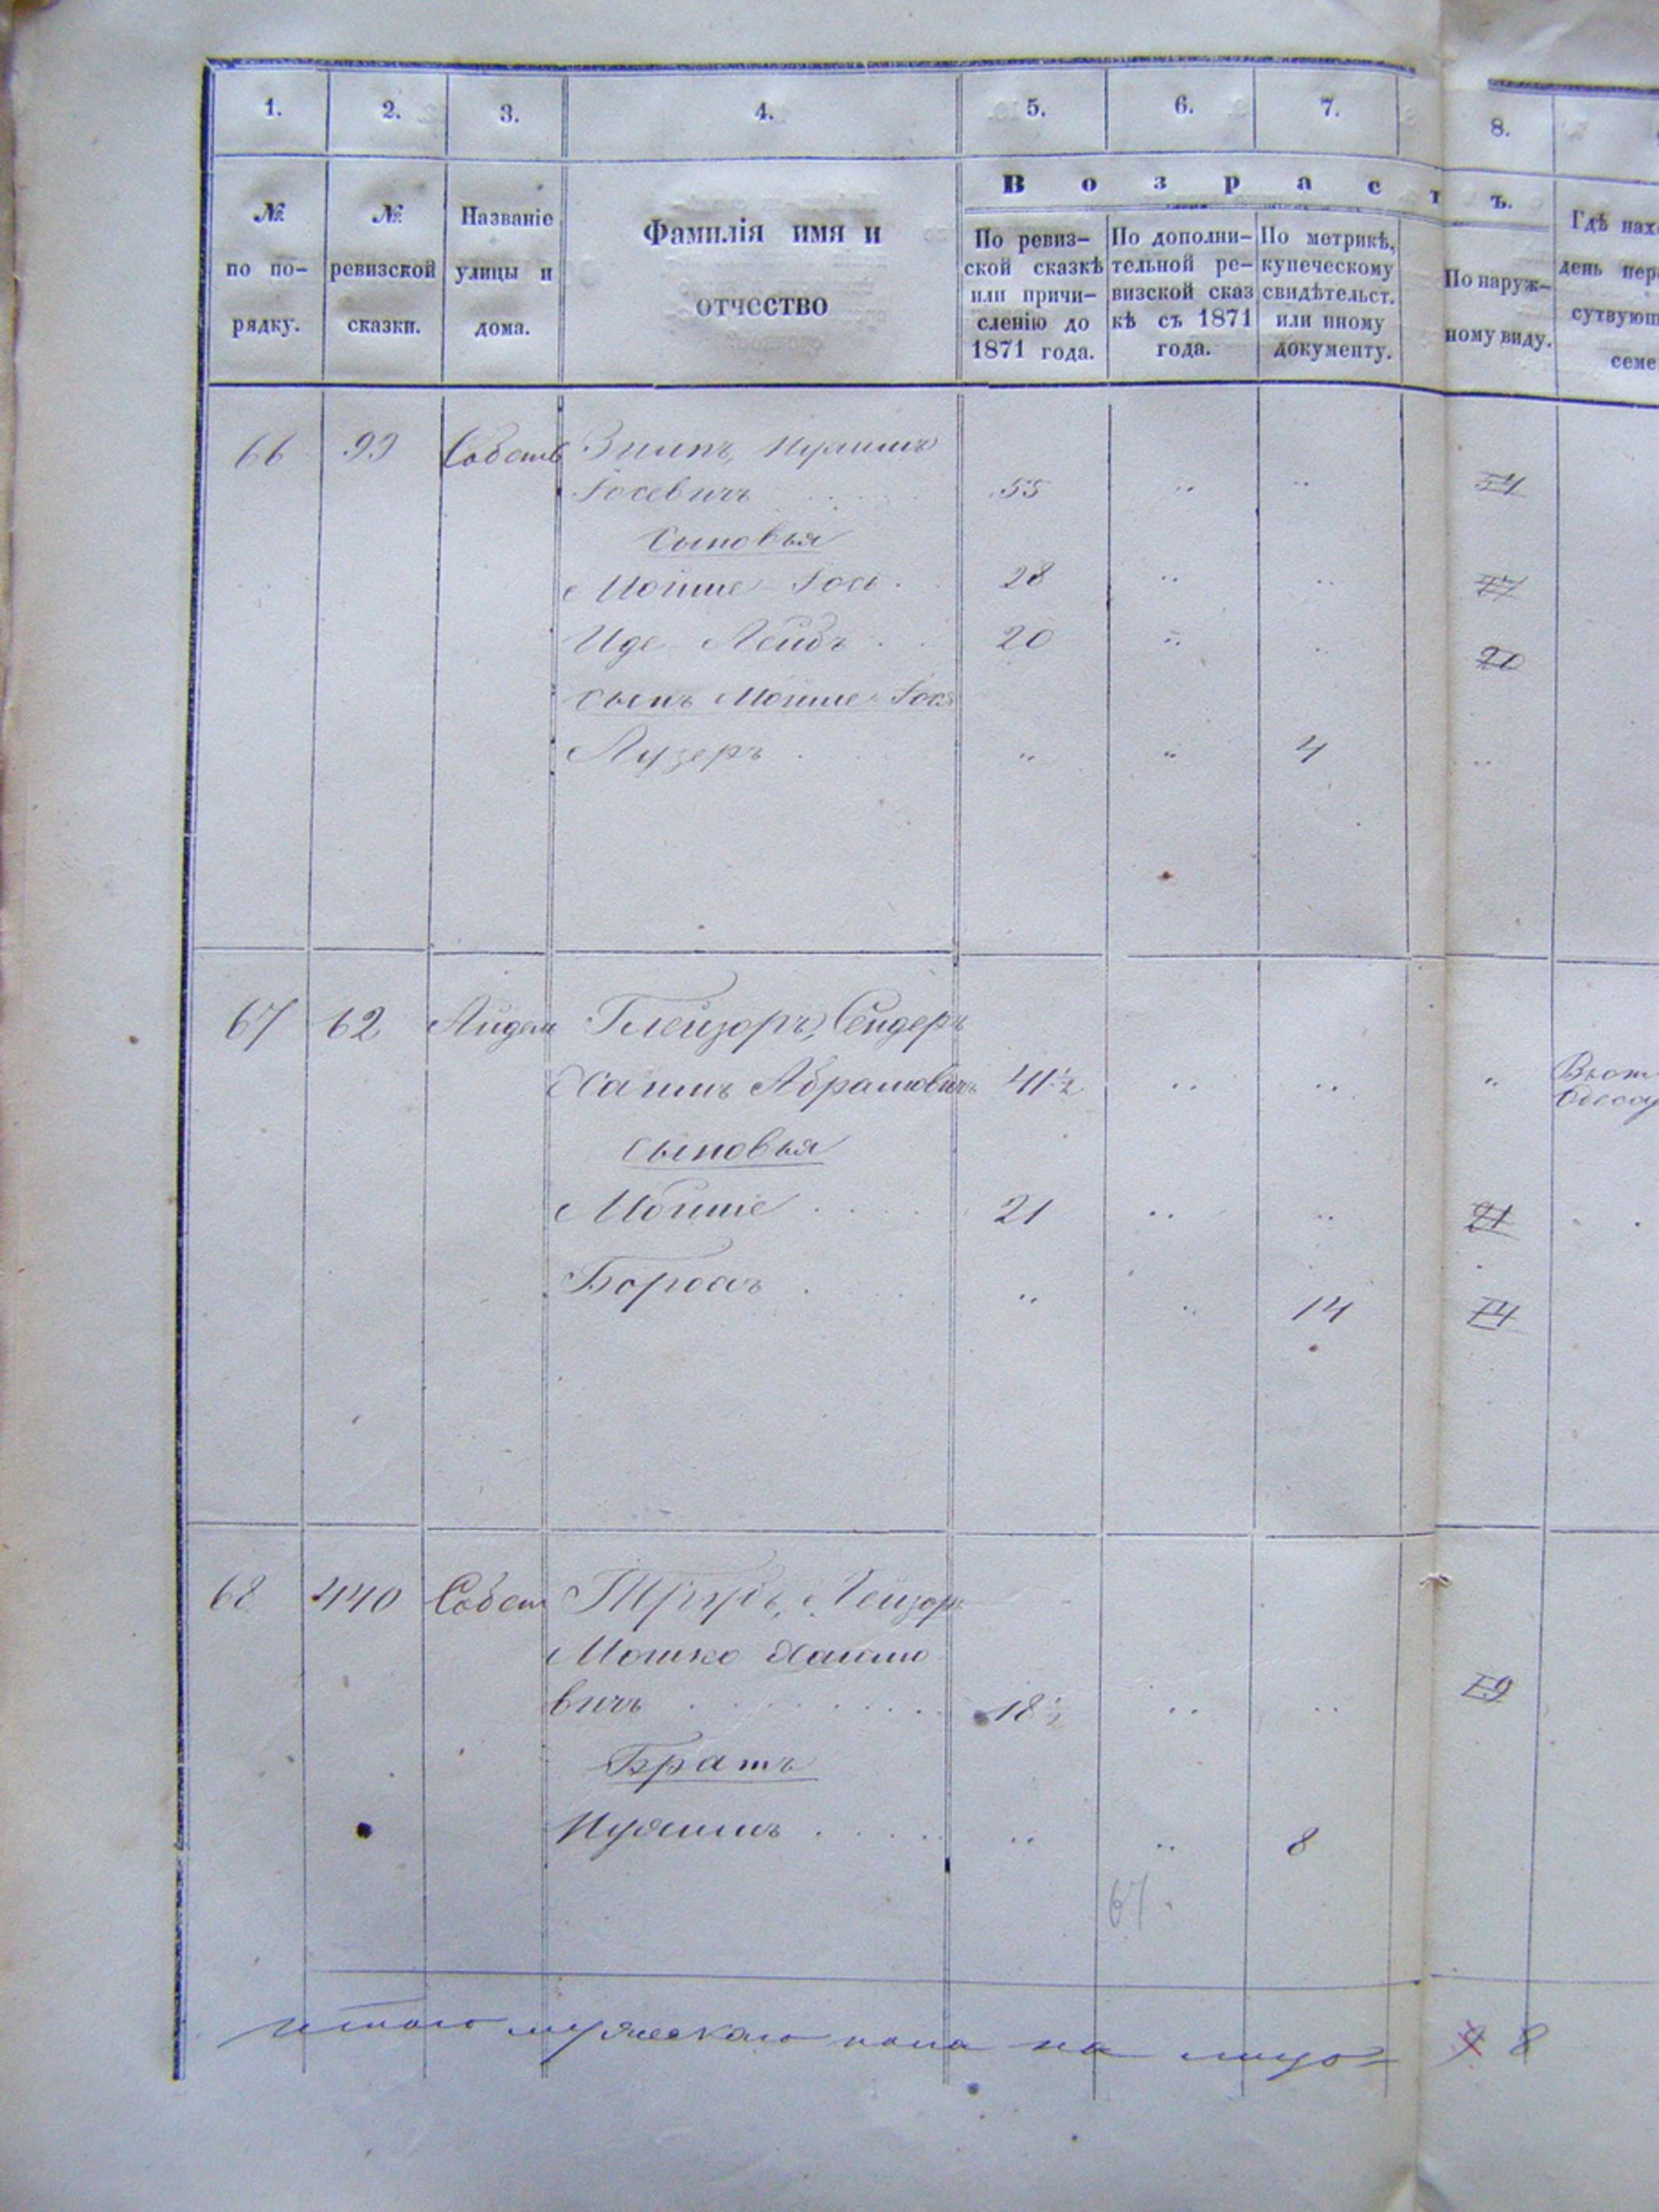 1. 2. 3. 4. 5. 6. 7. 8.
В о з р а с т ъ.
№ по по- рядку.
№ ревизской сказки.
Названіе улицы и дома.
Фамилія имя и
отчество
По ревиз-
ской сказкѣ
или причи-
сленію до
1871 года.
По дополни-
тельной ре-
визской сказ
кѣ съ 1871
года.
По метрикѣ,
купеческому
свидѣтельст.
или иному
документу.
По наруж-
ному виду.
Гдѣ нах
день пер
сутвующ
семе
66 99 Собств
Іосевичъ 55 54
Сыновья
Мойше-Іось 28 27
Иде-Лейбъ 20 20
Сынъ Мойше-Іося
Лузеръ 4
67 62 Глейзоръ, Сендеръ
Хаимъ Абрамовичъ 41½
Одессу
Сыновья
Мойше 21 21
Борохъ 14 14
68 440 Собст Лейзоръ
Мошко Хаимо
вичъ 18½ 19
Братъ
8
67
итого мужескаго пола на лицо 9 8